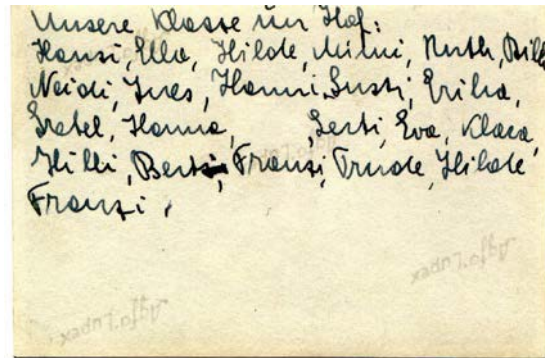 Unsere Klasse im Hof:
Hansi, Ella, Hilde, Mimi, Ruth, Billi
Heidi, Ines, Hanni, Susti, Erika,
Gretel, Hanna, Gerti, Eva, Klara,
Hilli, Berta, Franzi, Trude, Hilde
Franzi.
Agfa Lupex
Agfa Lupex
Agfa Lupex